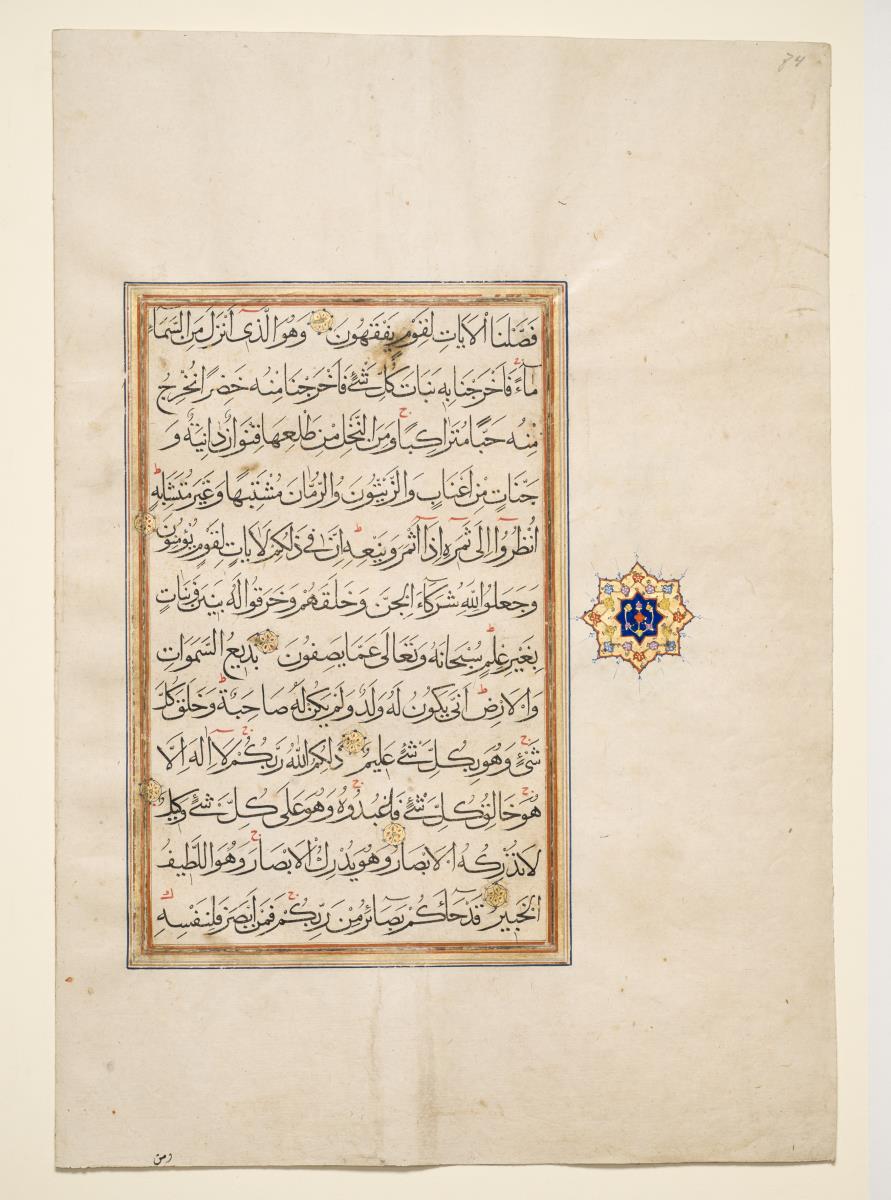 فَصَّلْنَا الْاٰيَاتِ لِقَوْمٍ يَفْقَهُونَ وَهُوَ الَّذِى اَنْزَلَ مِنَ السَّمَاءِ
مَآءً فَاَخْرَجْنَا بِهِ نَبَاتَ كُلِّ شَئٍ فَاَخْرَجْنَا مِنْهُ خَضِرًا نُخْرِجُ
مِنْهُ حَبًّا مُتَرَاكِبًا وَمِنَ النَّخْلِ مِنْ طَلْعِهَا قِنْوَانٌ دَانِيَةٌ وَ
جَنَّاتٍ مِنْ اَعْنَابٍ وَالزَّيْتُونَ وَالرُّمَّانَ مُشْتَبِهًا وَغَيْرَ مُتَشَابِهٍ
اُنْظُرُوا اِلَى ثَمَرِهِ اِذَا اَثْمَرَ وَيَنْعِهِ اِنَّ فِى ذَلِكُمْ لَاٰيَاتٍ لِقَوْمٍ يُؤْمِنُونَ
وَجَعَلُوا لِلّٰهِ شُرَكَآءَ الْجِنَّ وَخَلَقَهُمْ وَخَرَقُوا لَهُ بَنِينَ وَبَنَاتٍ
بِغَيْرِ عِلْمٍ سُبْحَانَهُ وَتَعَالَى عَمَّا يَصِفُونَ بَدِيعُ السَّمَوَاتِ
وَالْاَرْضِ اَنَّى يَكُونُ لَهُ وَلَدٌ وَلَمْ يَكُنْ لَهُ صَاحِبَةٌ وَخَلَقَ كُلَّ
شَئٍ وَهُوَ بِكُلِّ شَئٍ عَلِيمٌ ذَلِكُمُ اللّٰهُ رَبُّكُمْ لَا اِلٰهَ اِلَّا
هُوَ خَالِقُ كُلِّ شَئٍ فَاعْبُدُوهُ وَهُوَ عَلَى كُلِّ شَئٍ وَكِيلٌ
لَا تُدْرِكُهُ الْاَبْصَارُ وَهُوَ يُدْرِكُ الْاَبْصَارَ وَهُوَ اللَّطِيفُ
الْخَبِيرُ قَدْ جَآءَكُمْ بَصَآئِرُ مِنْ رَبِّكُمْ فَمَنْ اَبْصَرَ فَلِنَفْسِهِ
ومن